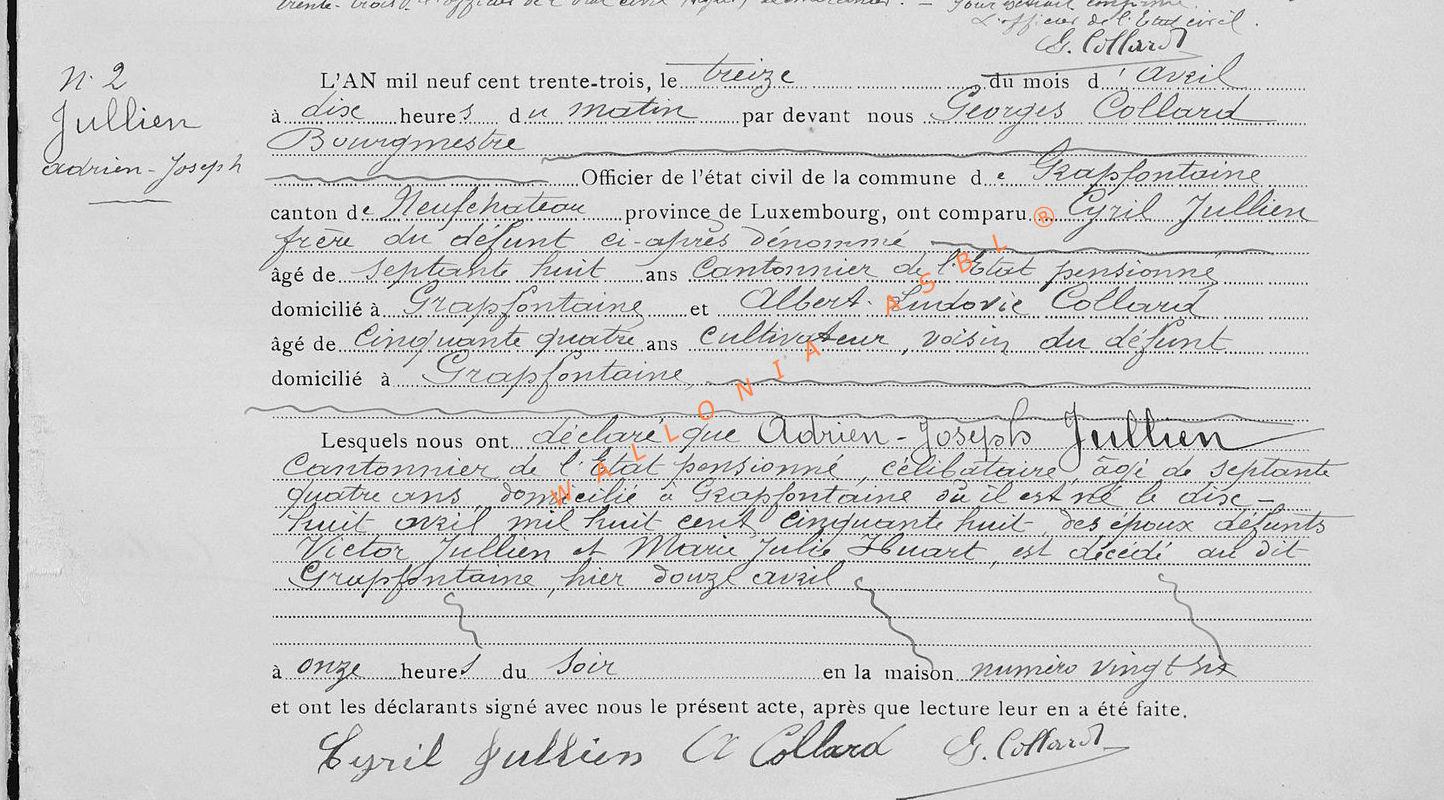 trente-trois
Pour extrait conforme.
L'officier de l'Etat civil.
G. Collard
N. 2
Jullien
adrien-Joseph
L'AN mil neuf cent trente-trois, le treize du mois d'avril
à dix heures du matin par devant nous Georges Collard
Bourgmestre
Officier de l'état civil de la commune de Grapfontaine
canton de Neufchateau province de Luxembourg, ont comparu Cyril Jullien
frère du défunt ci-après dénommé
âgé de septante huit ans Cantonnier de l'Etat pensionné
domicilié à Grapfontaine et Albert-Ludovic Collard
âgé de cinquante quatre ans cultivateur, voisin du défunt
domicilié à Grapfontaine,
Lesquels nous ont déclaré que Adrien-Joseph Jullien
Cantonnier de l'Etat pensionné, célibataire, âgé de septante
quatre ans, domicilié à Grapfontaine où il est né le dix-
huit avril mil huit cent cinquante huit, des époux défunts
Victor Jullien et Marie Julie Huart, est décédé au dit
Grapfontaine, hier douze avril
à onze heures du soir en la maison numéro vingt six
et ont les déclarants signé avec nous le présent acte, après que lecture leur en a été faite.
Cyril Jullien A Collard G. Collard
WALLONIA ASBL ®